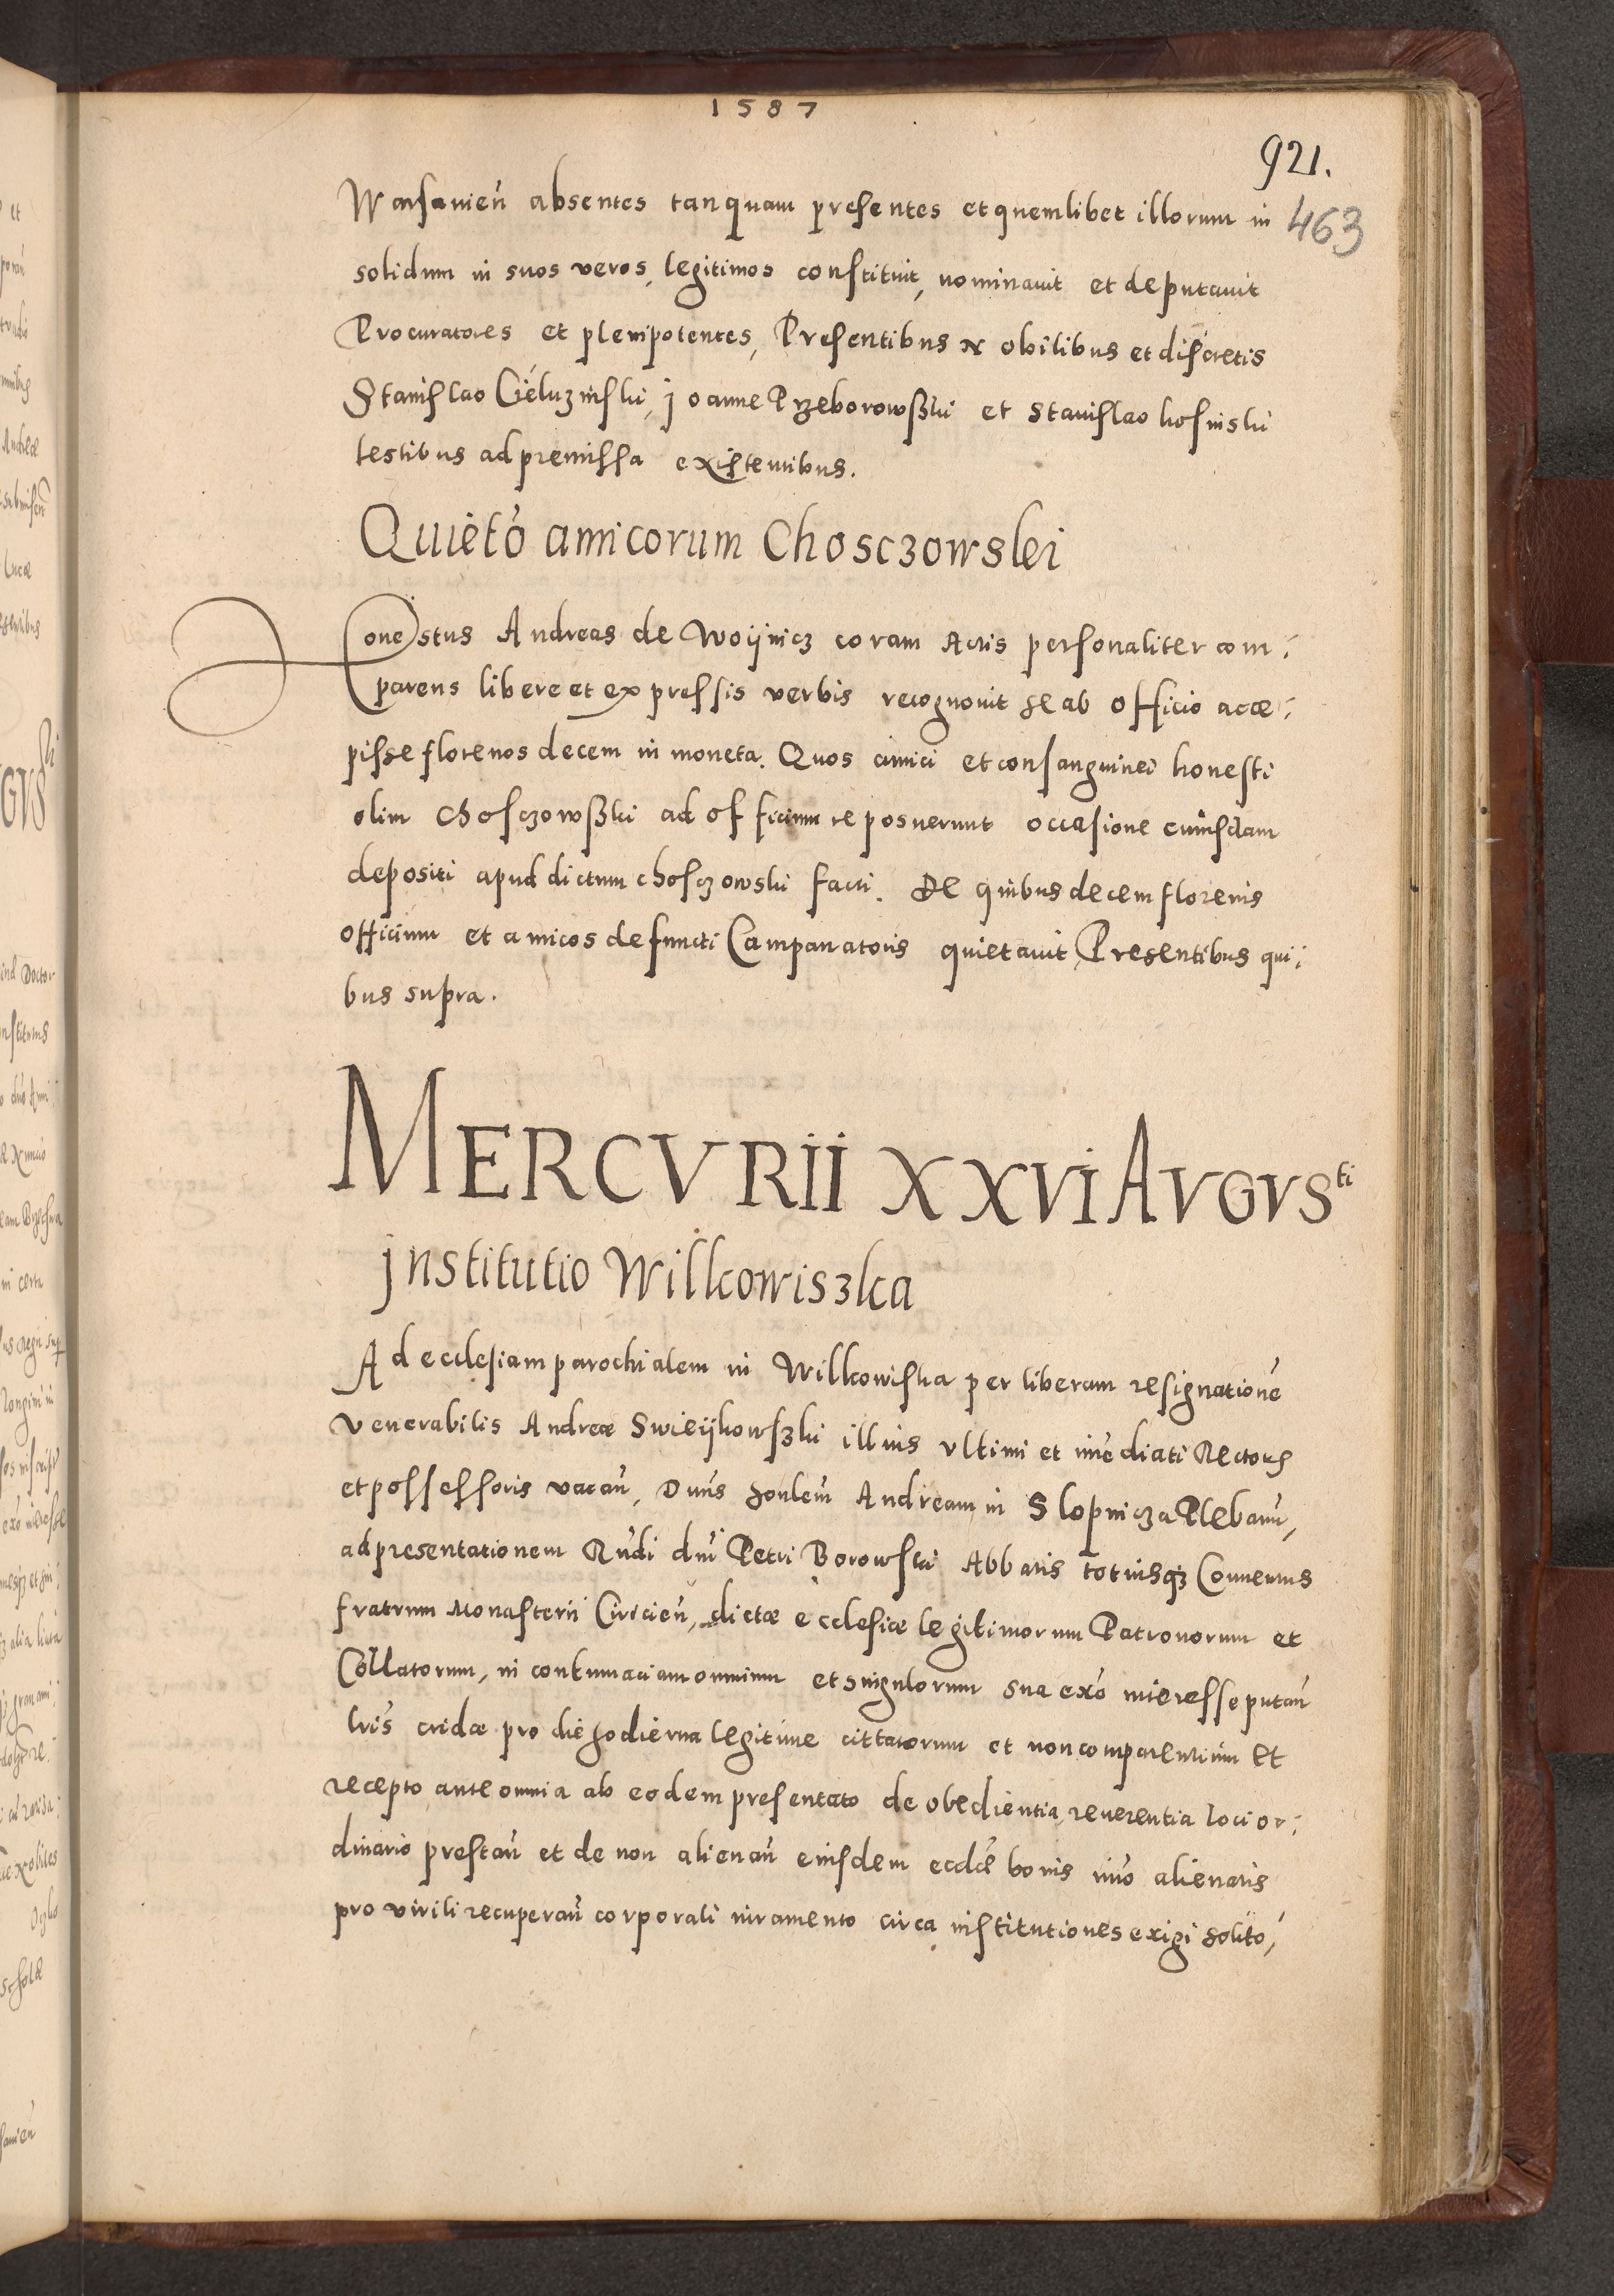 1587
921.
463
Warsavien̄ absentes tanquam presentes et quemlibet illorum in
solidum in suos veros, legitimos constituit, nominavit et deputavit
Procuratores et plenipotentes, Presentibus Nobilibus et discretis
Stanislao Cieluzinski, Joanne Przeborowßki et Stanislao kosinski
testibus ad premissa existentibus.
Quietō amicorum Chosczowskei
Honestus Andreas de Woijnicz coram Actis personaliter com:
parens libere et expressis verbis recognovit se ab officio acce:
pisse florenos decem in moneta. Quos amici et consanguinei honesti
olim Chosczowßki ad officium reposuerunt occasione cuiusdam
depositi apud dictum chosczowski facti. De quibus decem florenis
officium et amicos defuncti Campanatoris quietavit, Presentibus qui:
bus supra.
MERCVRII XXVI AVGVSti
Institutio Wilkowiszka
Ad ecclesiam parochialem in Wilkowiska per liberam resignationē
venerabilis Andreæ Swieijkowszki illius ultimi et im̄ediati Rectoris
et possessoris vacan̄, Dūns honlem̄ Andream in Slopnicza Plebanū,
ad presentationem Rn̄di dn̄i Petri Borowski Abbatis totiusq3 Conventus
fratrum Monasterii Ciricien̄, dictæ ecclesiæ legitimorum Patronorum et
Collatorum, in contumaciam omnium et singulorum sua exō interesse putan̄
lrīs cridæ pro die hodierna legitime cittatorum et non comparentium Et
recepto ante omnia ab eodem presentato de obedientia, reverentia loci or:
dinario prestan̄ et de non alienan̄ eiusdem ecclǣ bonis imō alienatis
pro virili recuperan̄ corporali iuramento circa institutiones exigi solito,